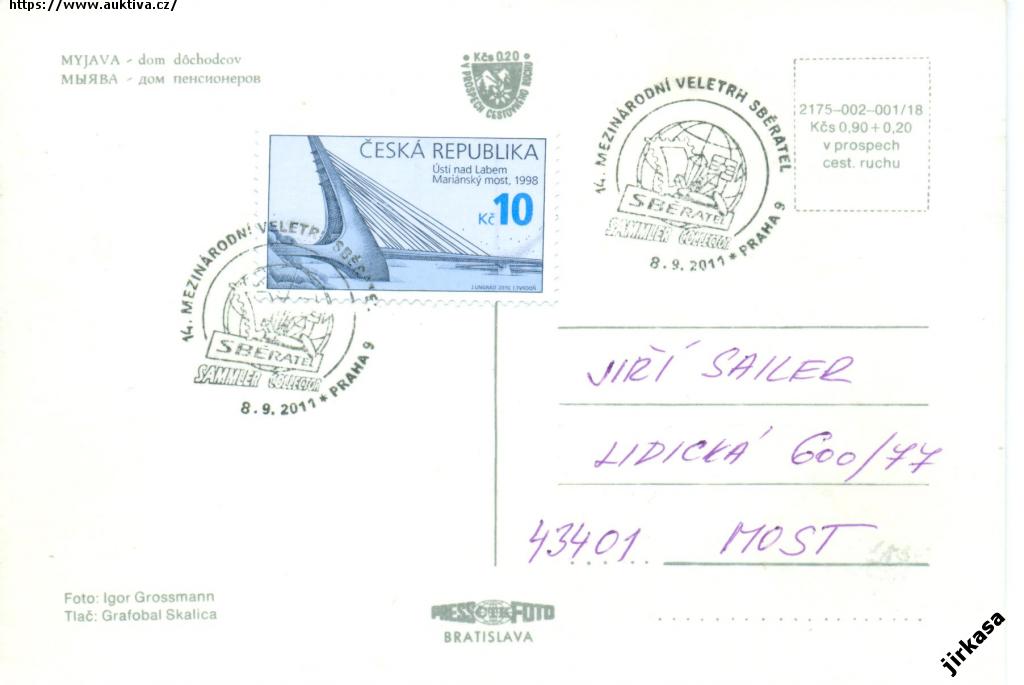 https://www.auktiva.cz/
MYJAVA - dom dôchodcov
МЫЯВА - дом пенсионеров
Kčs 0.20
V PROSPECH CESTOVNÉHO RUCHU
14. MEZINÁRODNÍ VELETRH SBĚRATEL
SBĚRATEL
SAMMLER COLLECTOR
8.9.2011 * PRAHA 9
2175-002-001/18
Kčs 0,90 + 0,20
v prospech
cest. ruchu
ČESKÁ REPUBLIKA
Ústí nad Labem
Mariánský most, 1998
Kč 10
14. MEZINÁRODNÍ VELETRH SBĚRATEL
SBĚRATEL
SAMMLER COLLECTOR
8.9.2011 * PRAHA 9
JIŘÍ SAILER
LIDICKÁ 600/77
43401 MOST
Foto: Igor Grossmann
Tlač: Grafobal Skalica
PRESSFOTO
BRATISLAVA
jirkasa